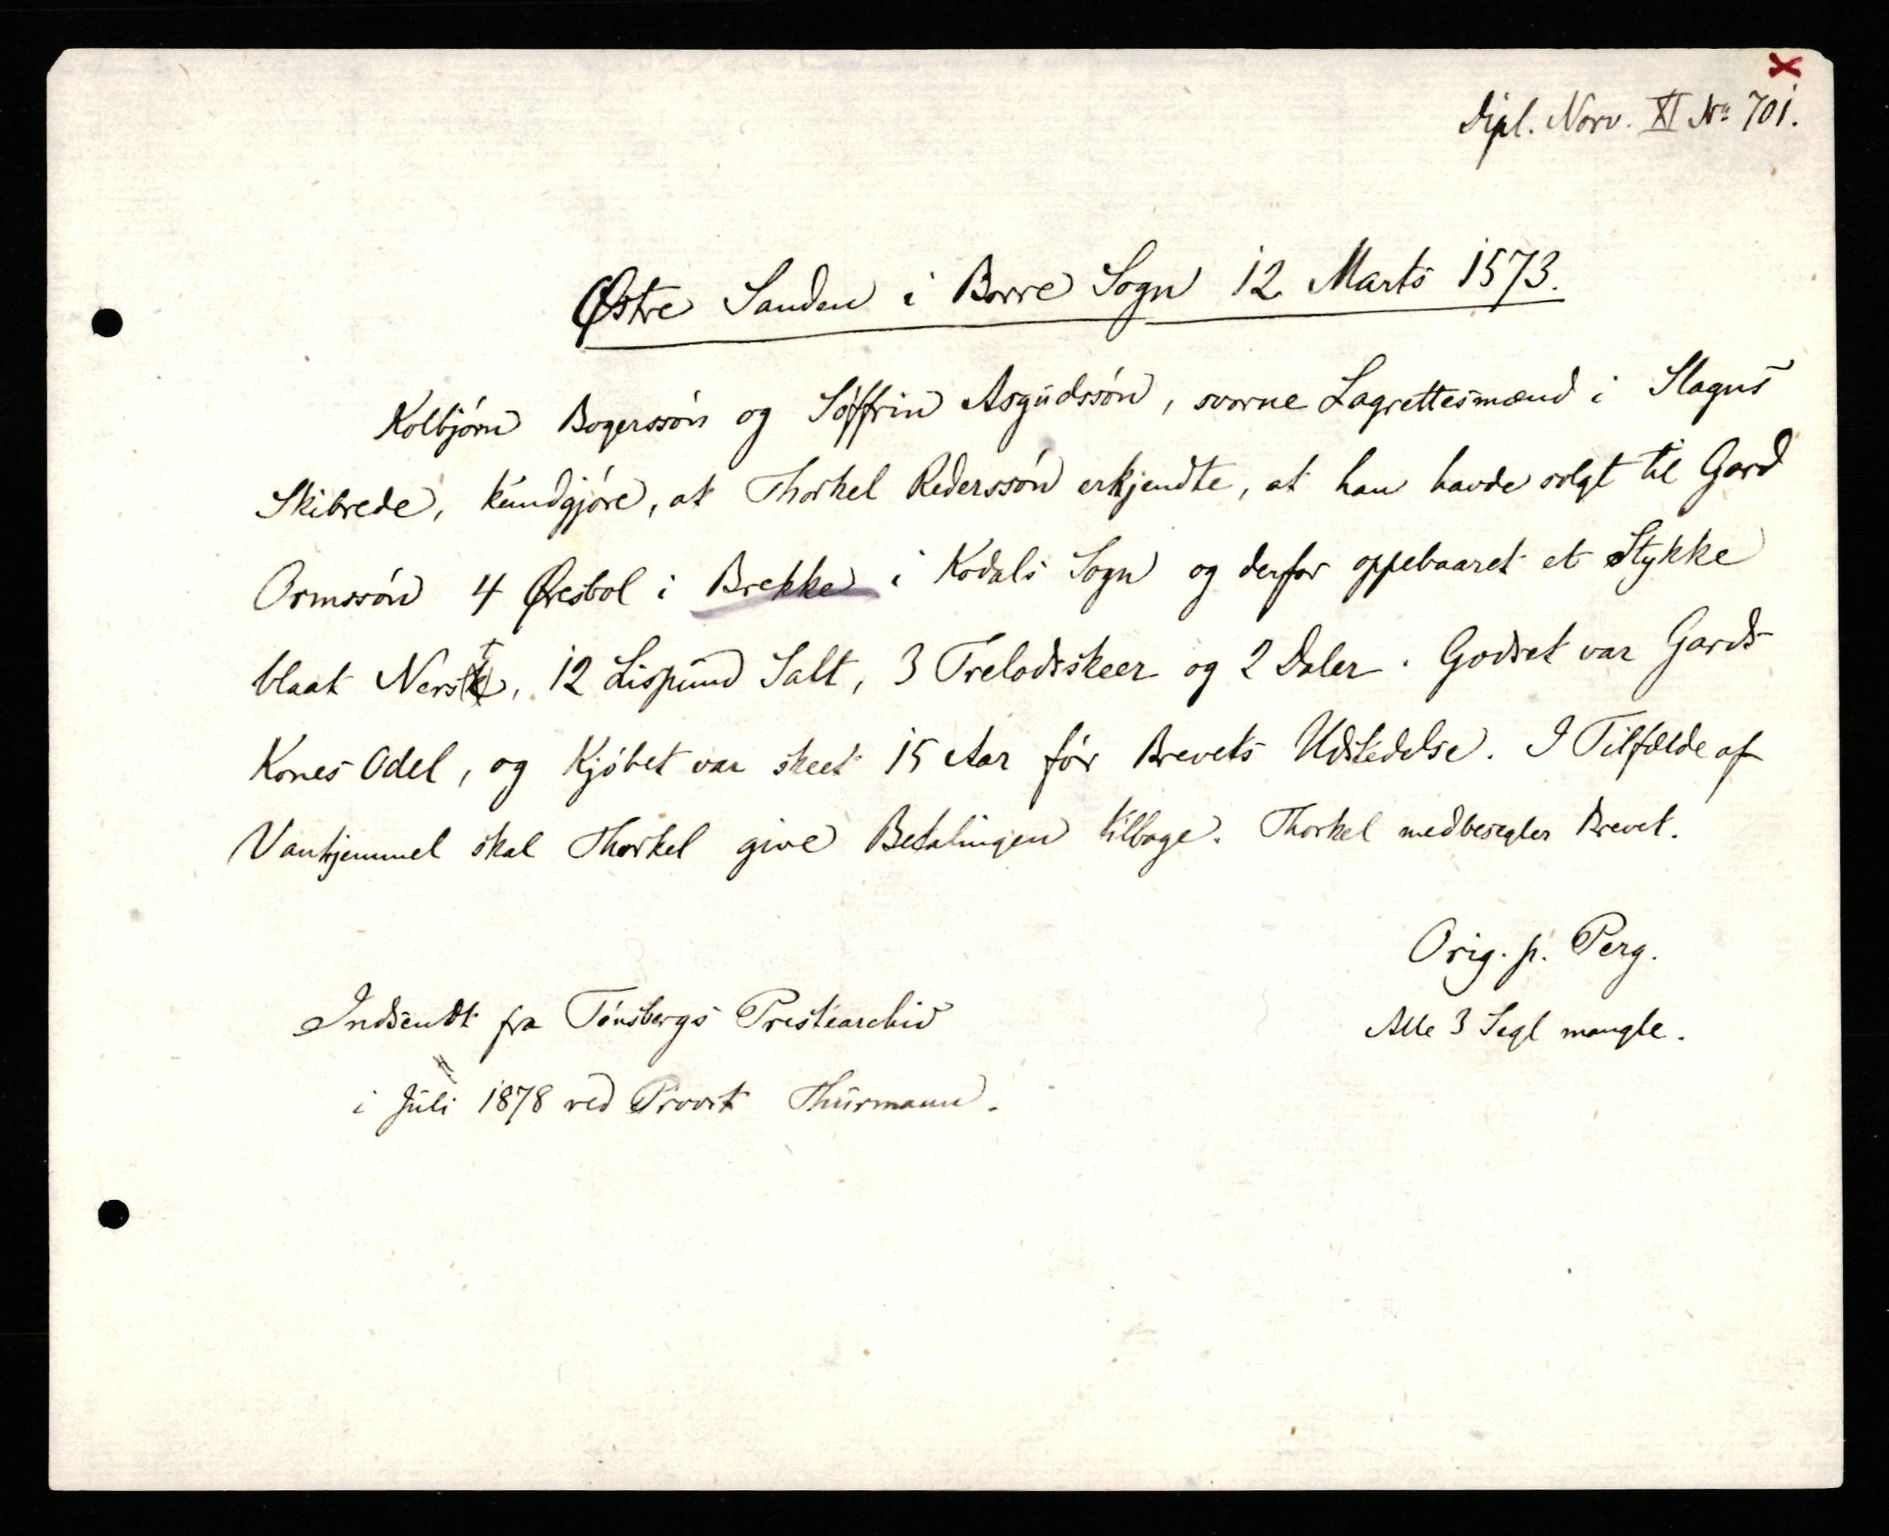 x
Dipl. Norv. XI No 701.
Østre Sanden i Borre Sogn 12 Marts 1573.
Kolbjørn Bogerssøn og Søffrin Asgudssøn, svorne Lagrettesmænd i Slagns
Skibrede, kundgjøre, at Thorkel Rederssøn erkjendte, at han havde solgt til Gard
Ormssøn 4 Øresbol i Brekke i Kodals Sogn og derfor oppebaaret et Stykke
blaat Nerst, 12 Lispund Salt, 3 Trelodsskeer og 2 Daler. Godset var Gards
Kones Odel, og Kjøbet var skeet 15 Aar før Brevets Udstedelse. I Tilfælde af
Vanhjemmel skal Thorkel give Betalingen tilbage. Thorkel medbesegler Brevet.
Orig. p. Perg.
Alle 3 Segl mangle.
Indsendt fra Tønsbergs Prestearchiv
i Juli 1878 ved Provst Thurmann.